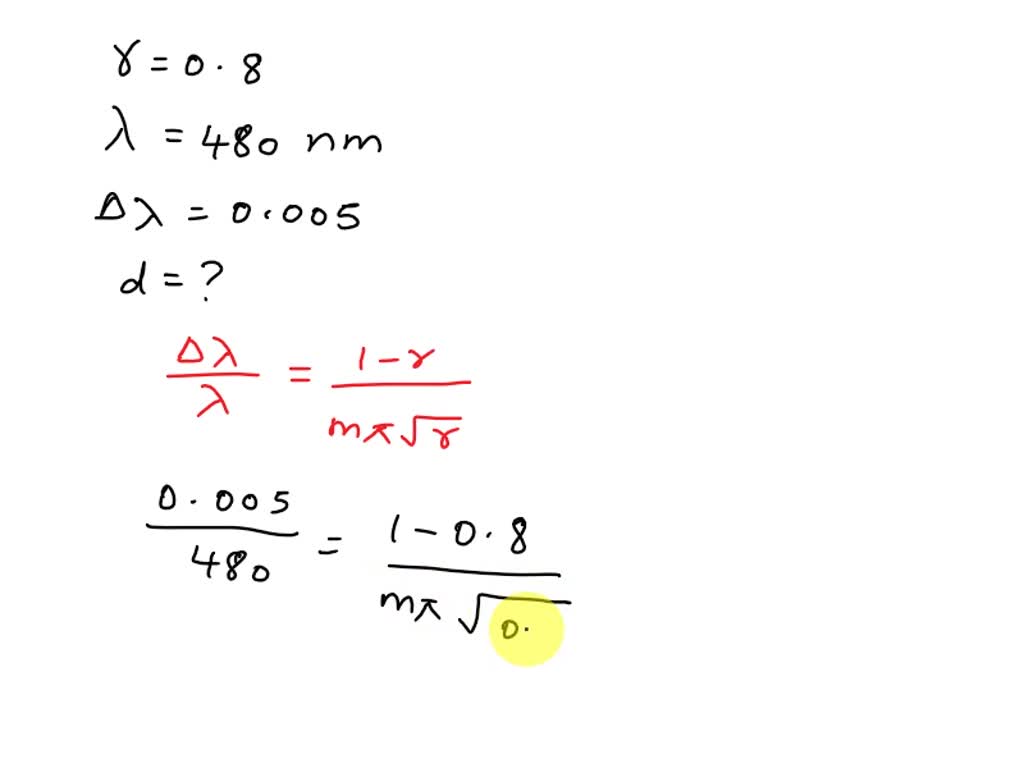 γ = 0.8
λ = 480 nm
Δλ = 0.005
d = ?
Δλ/λ = 1-γ/mπ√γ
0.005/480 = 1-0.8/mπ√0.